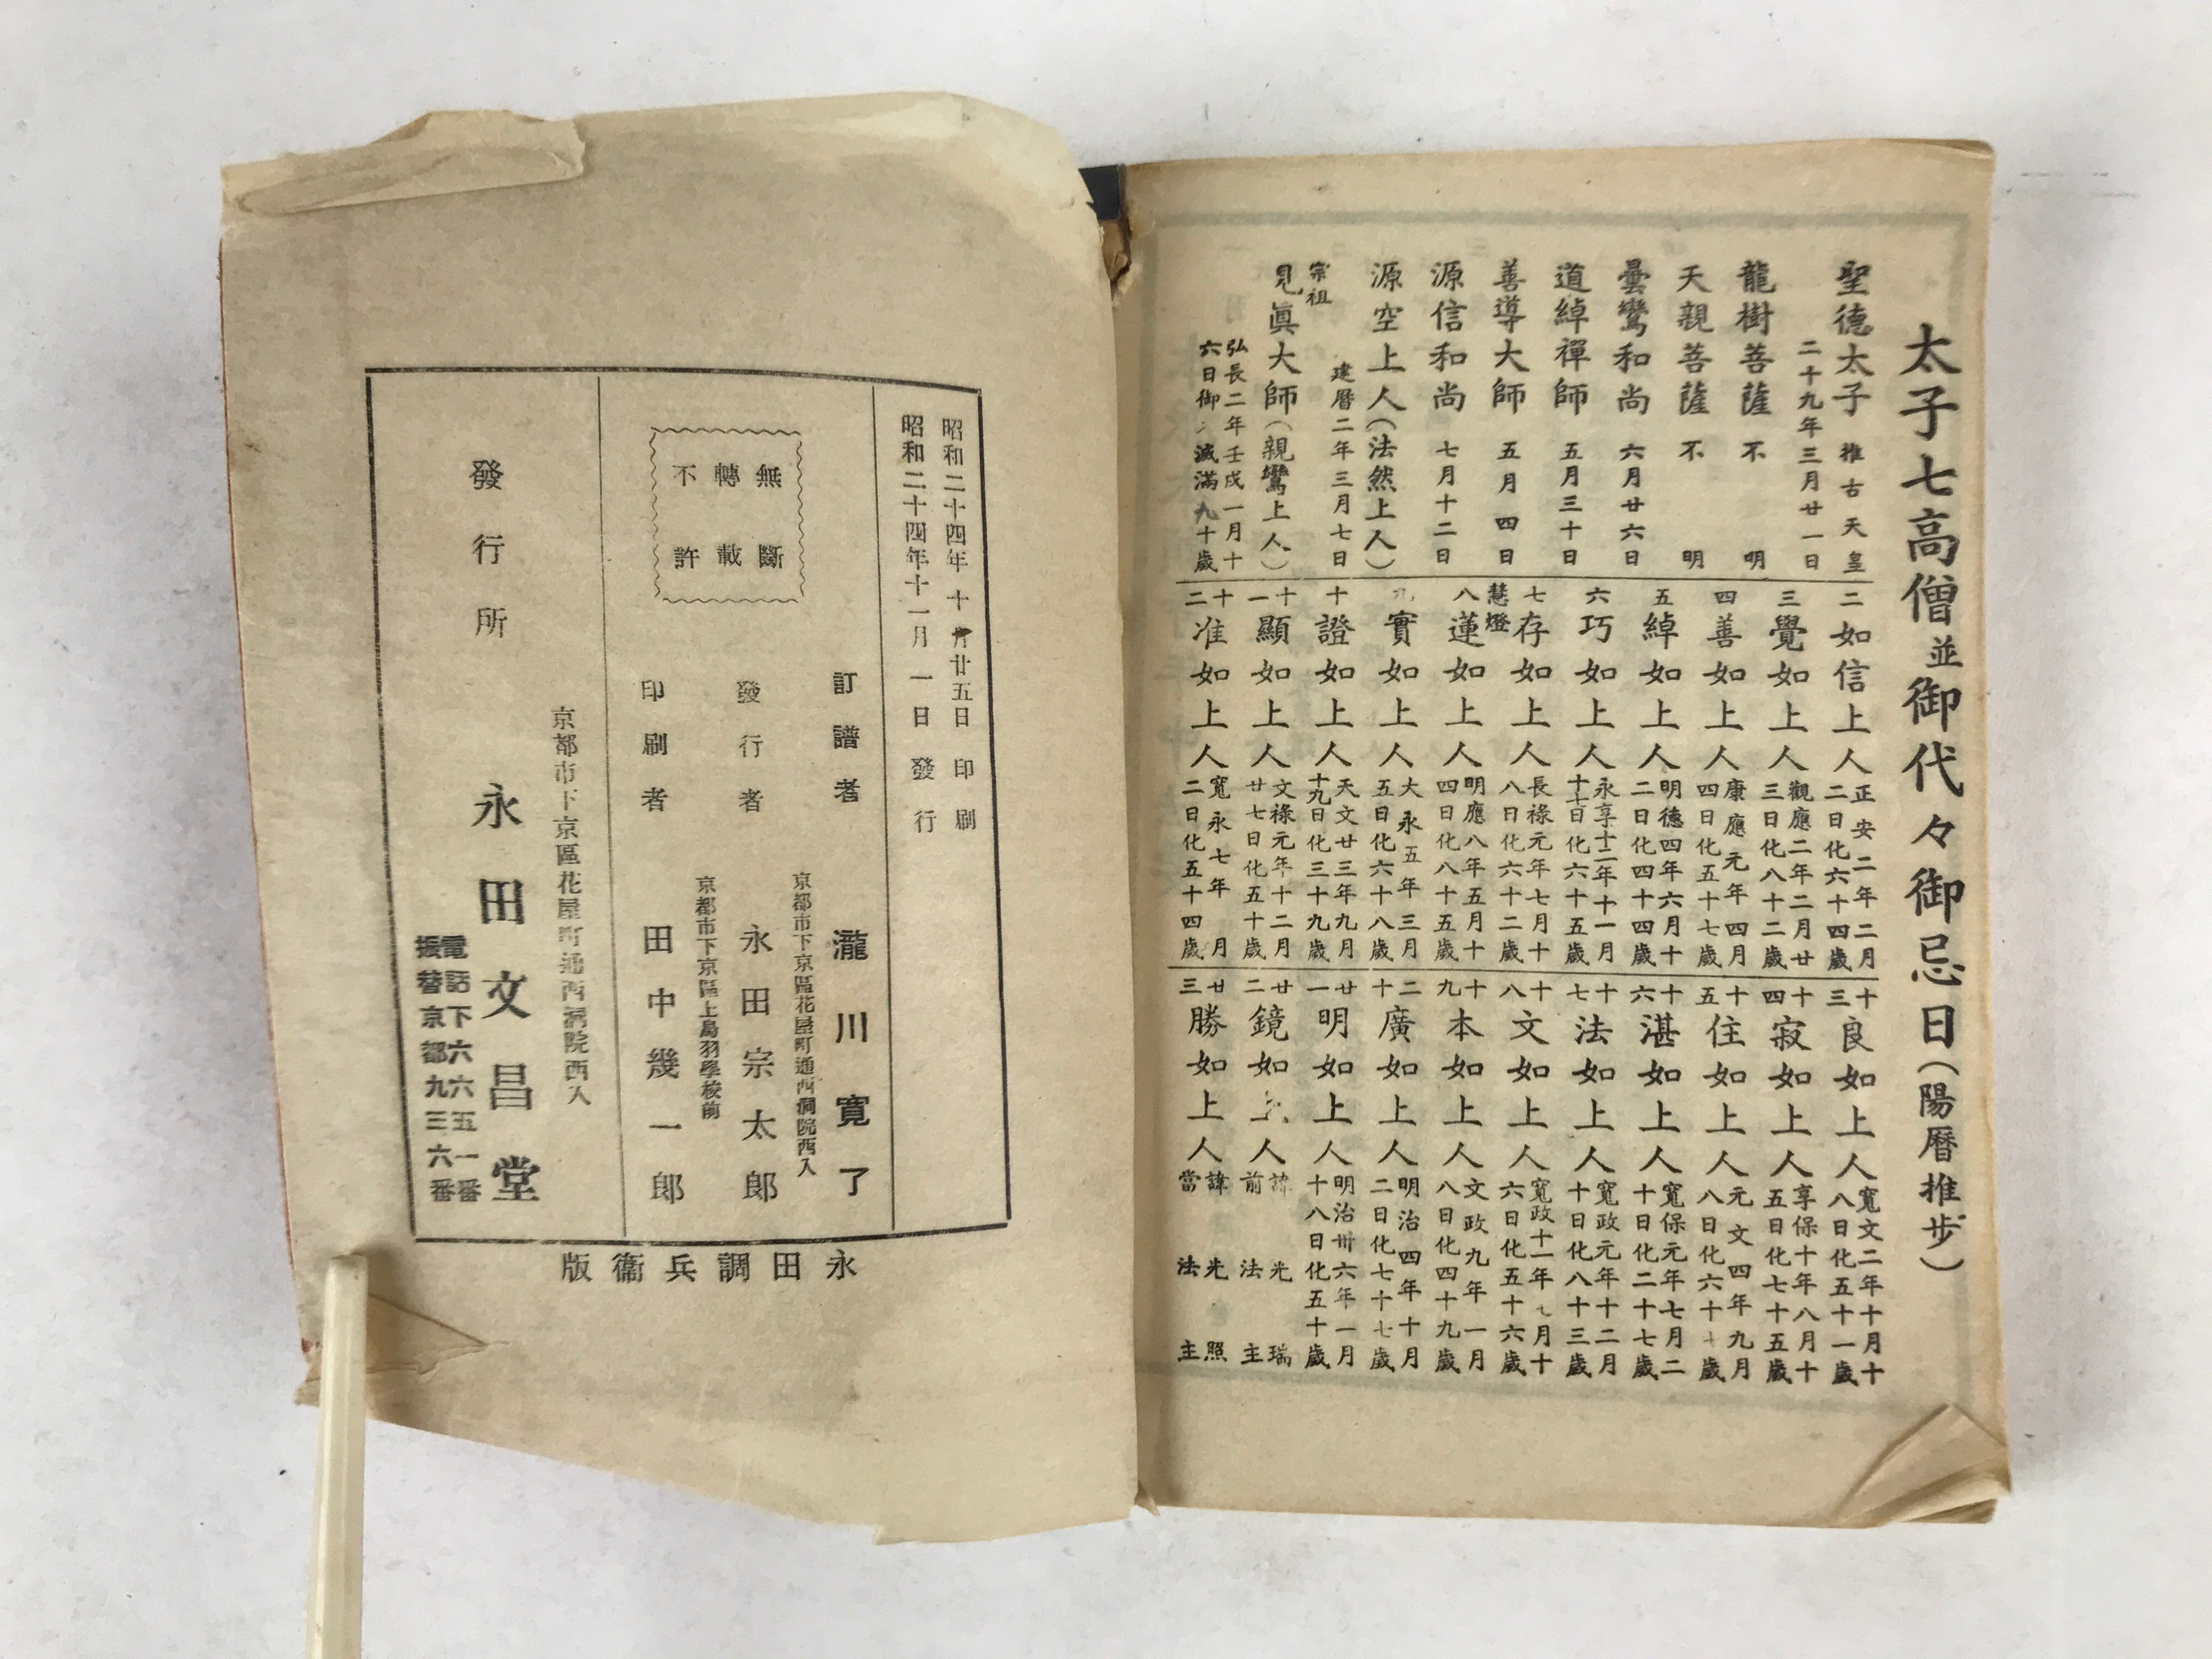 太子七高僧並御代々御忌日(陽曆推歩)
聖德太子 推古天皇
二十九年三月廿一日
龍樹菩薩 不明
天親菩薩 不明
曇鸞和尚 六月廿六日
道綽禪師 五月三十日
善導大師 五月四日
源信和尚 七月十二日
源空上人(法然上人)
建曆二年三月七日
宗祖
見眞大師(親鸞上人)
弘長二年壬戌一月十
六日御滅滿九十歲
二如信上人 正安二年二月
二日化六十四歲
三覺如上人 觀應二年二月廿
三日化八十二歲
四善如上人 康應元年四月
四日化五十七歲
五綽如上人 明德四年六月十
二日化四十四歲
六巧如上人 永享十二年十一月
十七日化六十五歲
七存如上人 長祿元年七月十
八日化六十二歲
慧燈
八蓮如上人 明應八年五月十
四日化八十五歲
九實如上人 大永五年三月
五日化六十八歲
十證如上人 天文廿三年九月
十九日化三十九歲
十一顯如上人 文祿元年十二月
廿七日化五十歲
十二准如上人 寬永七年 月
二日化五十四歲
十三良如上人 寬文二年十月十
八日化五十一歲
十四寂如上人 享保十年八月十
五日化七十五歲
十五住如上人 元文四年九月
八日化六十七歲
十六湛如上人 寬保元年七月二
十日化二十七歲
十七法如上人 寬政元年十二月
十日化八十三歲
十八文如上人 寬政十一年七月十
六日化五十六歲
十九本如上人 文政九年一月
八日化四十九歲
二十廣如上人 明治四年十月
二日化七十七歲
廿一明如上人 明治卅六年一月
十八日化五十歲
廿二鏡如上人 諱光瑞
前法主
廿三勝如上人 諱光照
當法主
昭和二十四年十月廿五日印刷
昭和二十四年十一月一日發行
訂譜者 瀧川寬了
京都市下京區花屋町通西洞院西入
發行者 永田宗太郎
京都市下京區上鳥羽學校前
印刷者 田中幾一郎
無斷
轉載
不許
京都市下京區花屋町通西洞院西入
發行所 永田文昌堂
電話下六六五一番
振替京都九三六番
永田調兵衞版